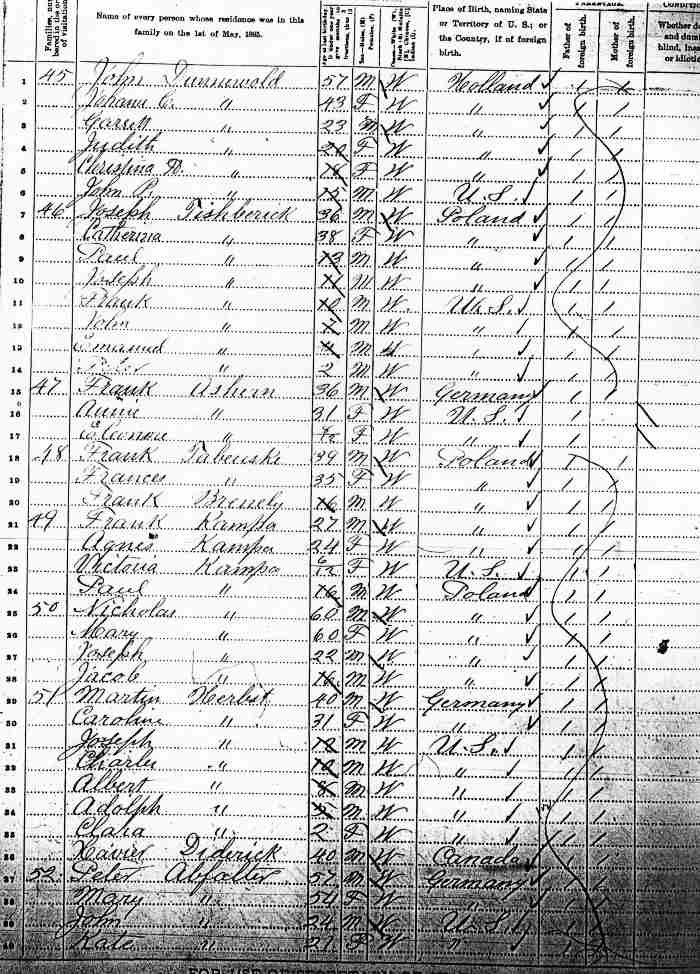 Families, num- bered in the or- der of visitation.
Name of every person whose residence was in this family on the 1st of May, 1885.
Place of Birth, naming State or Territory of U. S.; or the Country, if of foreign birth.
Father of foreign birth.
Mother of foreign birth.
Whether de and dum blind, insa or idiotic
1 45 John Dunnewold 57 M W Holland
2 Johana C. " 43 F W "
3 Garrett " 23 M W "
4 Judith " 20 F W "
5 Christina D. " 18 F W "
6 John P. " 15 M W U.S.
7 46 Joseph Fishberick 36 M W Poland
8 Catherina " 38 F W "
9 Paul " 13 M W "
10 Joseph " 11 M W "
11 Frank " 10 M W. U.S.
12 John " 7 M W "
13 Emanuel " 4 M W "
14 " 2 M W "
15 47 Frank 36 M W Germany
16 Annie " 31 F W U.S.
17 Eleonore " /12 F W "
18 48 Frank Tabenski 39 M W Poland
19 Frances " 35 F W "
20 Frank 16 M W "
21 49 Frank Kampa 27 M W "
22 Agnes Kampa 24 F W "
23 Victoria Kampa 6/12 F W U.S.
24 Paul " 16 M W Poland
25 50 Nicholas " 60 M W "
26 Mary " 60 F W "
27 Joseph " 22 M W "
28 Jacob " 16 M W "
29 51 Martin Herbst 40 M W Germany
30 Caroline " 31 F W "
31 Joseph " 12 M W U.S.
32 Charles " 10 M W "
33 Albert " 8 M W "
34 Adolph " 5 M W "
35 Clara " 2 F W "
36 Xavier Diderick 40 M W Canada
37 52 Peter Abfalter 57 M W Germany
38 Mary " 54 F W "
39 John " 24 M W U.S.
40 Kate " 21 F W "